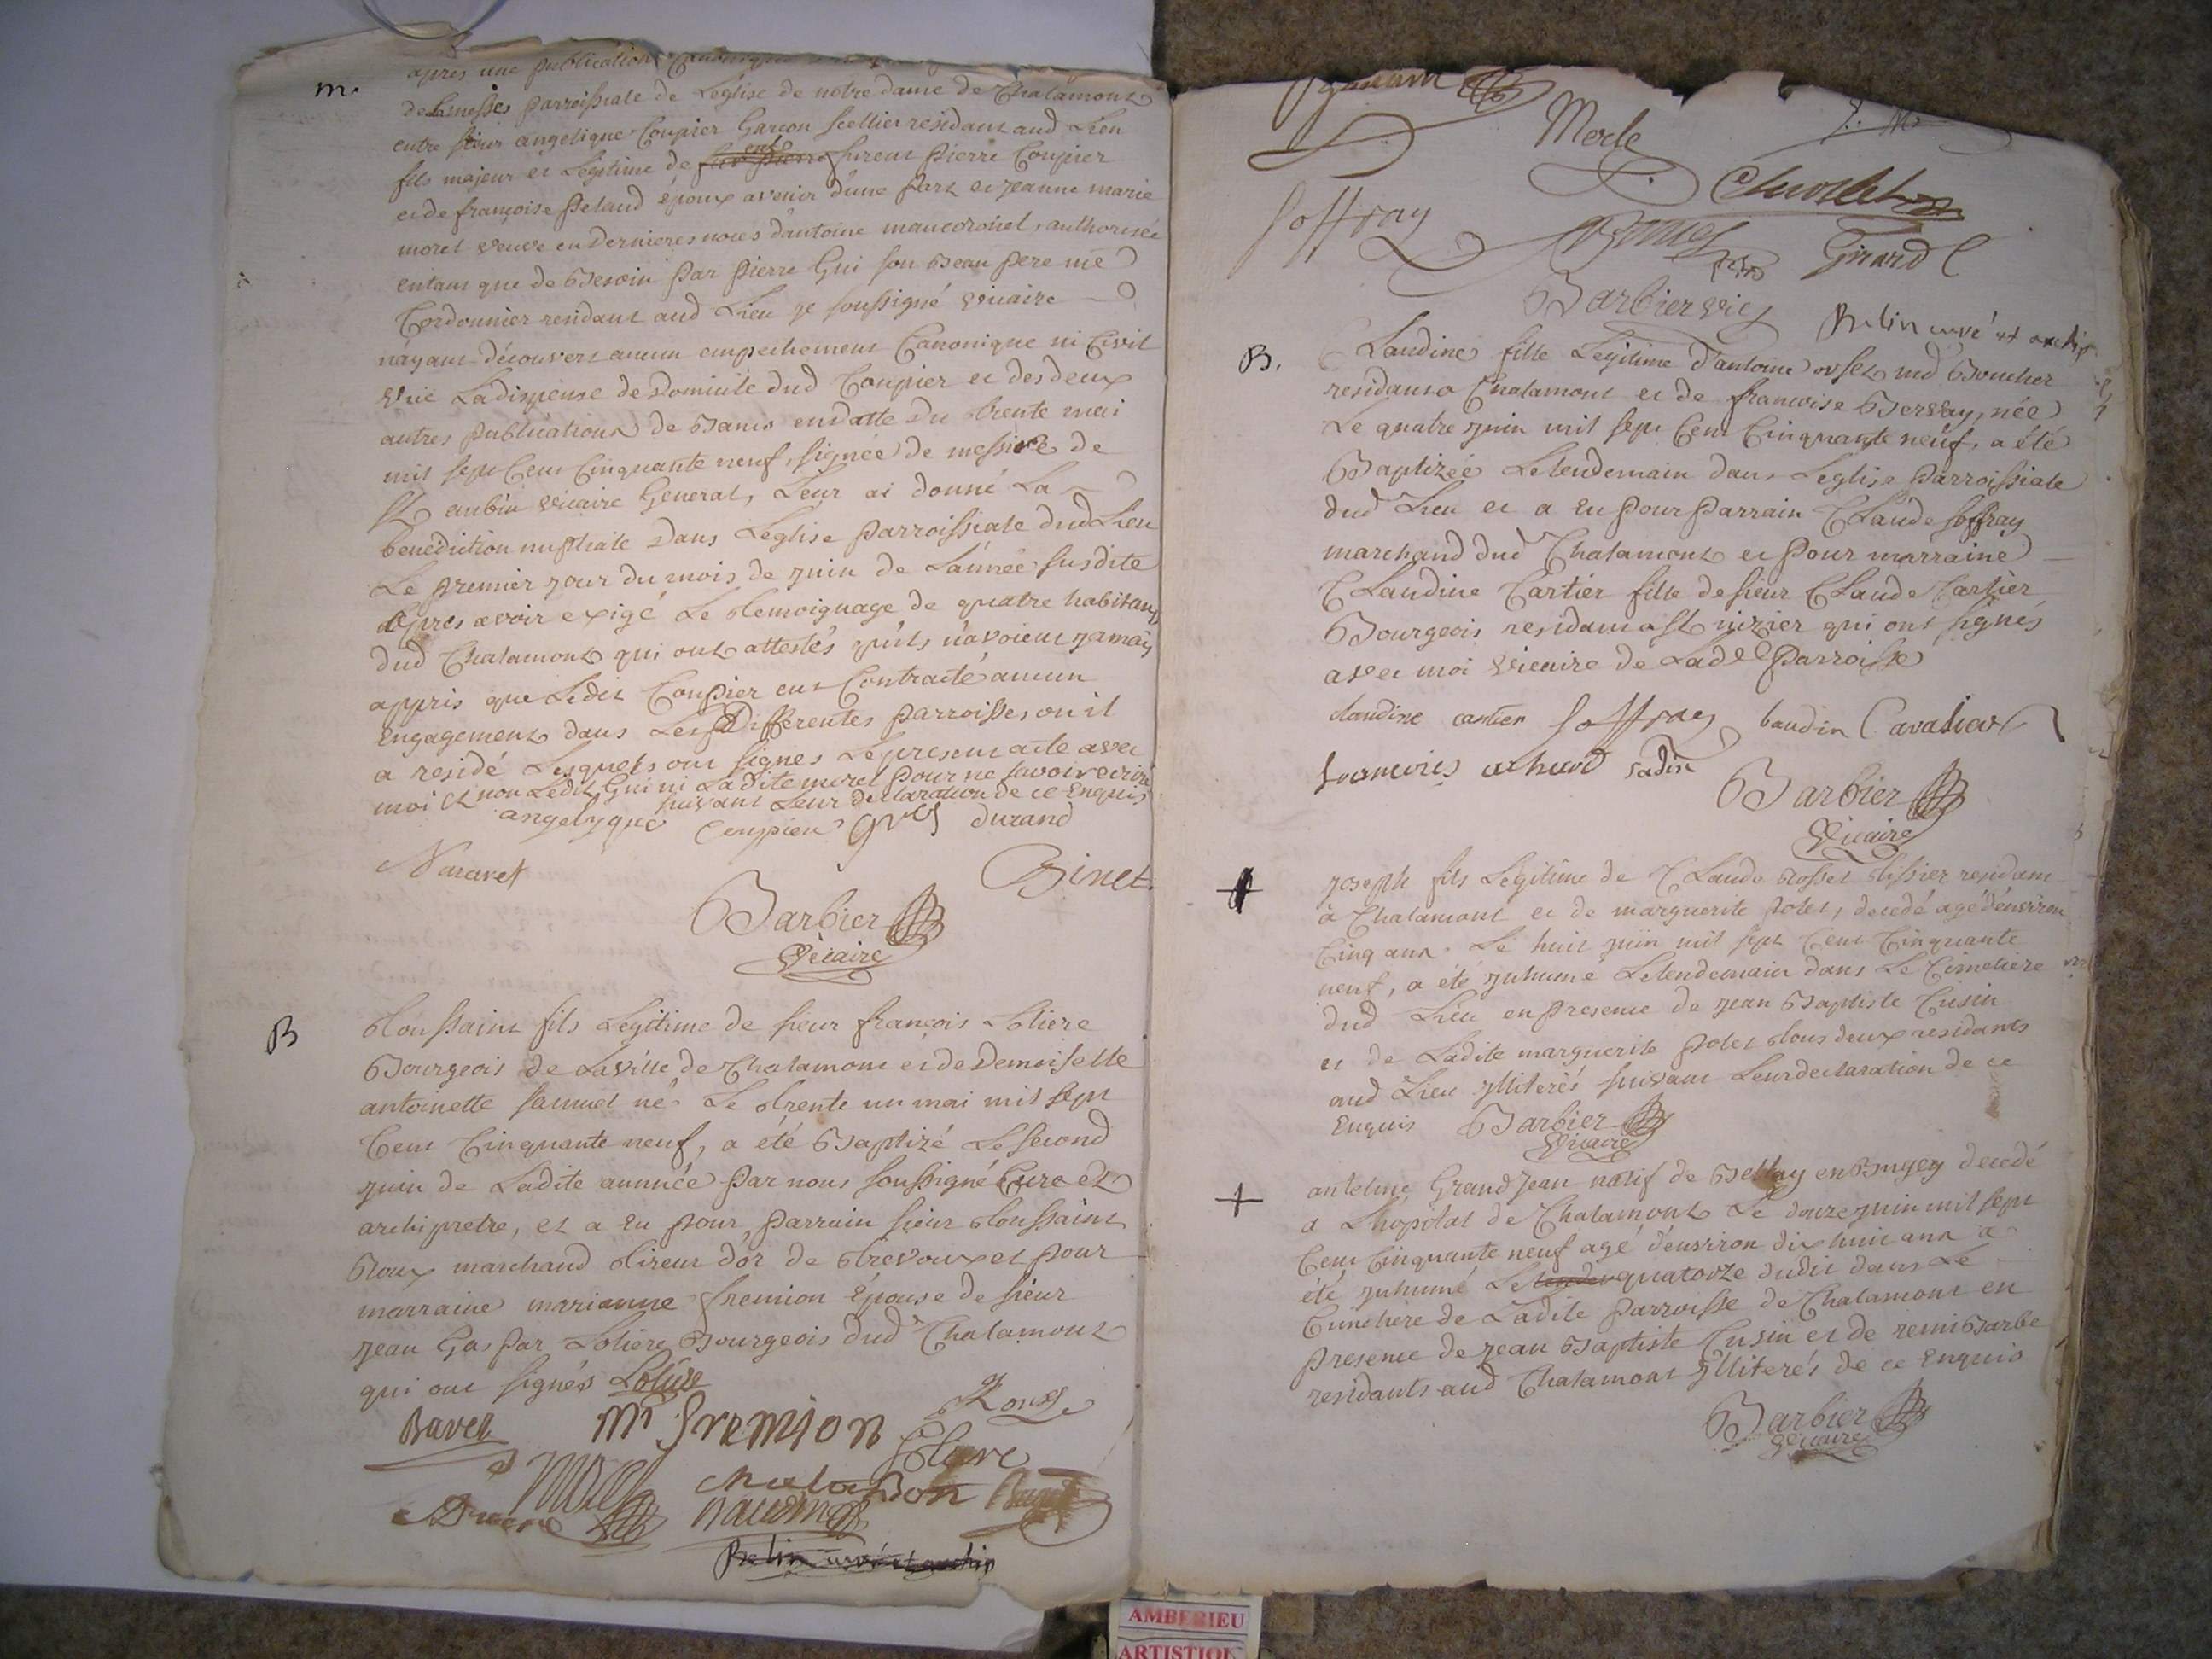 m.
apres une publication Canonique
des messes parroissiale de L'eglise de notre dame de Chalamont
entre sieur angelique Coupier Garcon sellier residant aud Lieu
fils majeur et Legitime de furent pierre Coupier
et de françoise pelaud époux avenir d'une part et jeanne marie
morel veuve en dernieres noces d'antoine maucoronel, authorisée
entant que de Besoin par pierre Gui son Beau pere me
Cordonnier residant aud Lieu je soussigné vicaire
n'ayant découvert aucun empechement Canonique ni Civil
vue La dispense de Domicile dud Coupier et des deux
autres publications de Bans en datte du trente mai
mil sept Cent Cinquante neuf, signée de messire de
St aubin vicaire General, Leur ai donné La
benediction nuptiale dans L'eglise parroissiale dud Lieu
Le premier jour du mois de juin de L'année susdite
apres avoir exigé Le temoignage de quatre habitans
dud Chalamont qui ont attestés qu'ils n'avoient jamais
appris que Ledit Coupier eut Contracté aucun
Engagement dans Les Differentes parroisses ou il
a residé Lesquels ont signes Le present acte avec
moi et non Ledit Gui ni La dite morel pour ne savoir ecrire
suivant Leur declaration de ce Enquis
angelyque Coupier durand
Binet
Barbier
Vicaire
B
toussaint fils Legitime de sieur françois Loliere
Bourgeois de La ville de Chalamont et de Demoiselle
antoinette samuel né Le trente un mai mil sept
Cent Cinquante neuf, a été Baptizé Le second
juin de Ladite année par nous soussigné Curé et
archipretre, et a Eu pour parrain sieur toussaint
Roux marchand tireur d'or de trevoux et pour
marraine marianne fremion Épouse de sieur
jean Gaspar Loliere Bourgeois dud Chalamont
qui ont signés Loliere
Bavet mr fremion Roux
Loliere
chaladon
Baudin
Belin curé et archip
Merle
Soffray
Girard
Barbier vic
Belin curé et archip
B.
Claudine fille Legitime d'antoine orset md Boucher
residant a Chalamont et de francoise Bervay, née
Le quatre juin mil sept Cent Cinquante neuf, a été
Baptizée Le lendemain dans L'eglise parroissiale
dud Lieu et a Eu pour parrain Claude soffray
marchand dud Chalamont et pour marraine
Claudine Cartier fille de sieur Claude Cartier
Bourgeois residant a St nizier qui ont signés
avec moi vicaire de Lad parroisse
claudine cartier soffray baudin Cavalier
Barbier
Vicaire
joseph fils Legitime de Claude rosset tissier residant
à Chalamont et de marguerite polet, decedé agé d'environ
Cinq ans Le huit juin mil sept Cent Cinquante
neuf, a été juhumé Le lendemain dans Le Cimetiere
dud Lieu en presence de jean Baptiste Cusin
et de Ladite marguerite polet tous deux residants
aud Lieu jlliterés suivant Leur declaration de ce
Enquis Barbier
Vicaire
antelme Grand jean natif de Bellay en Bugey decedé
a L'hopital de Chalamont Le douze juin mil sept
Cent Cinquante neuf agé d'environ dix huit ans a
été juhumé Le quatorze dudit dans Le
Cimetiere de Ladite parroisse de Chalamont en
presence de jean Baptiste Cusin et de remi Barbe
residants aud Chalamont jlliterés de ce Enquis
Barbier
Vicaire
AMBERIEU
ARTISTIQ